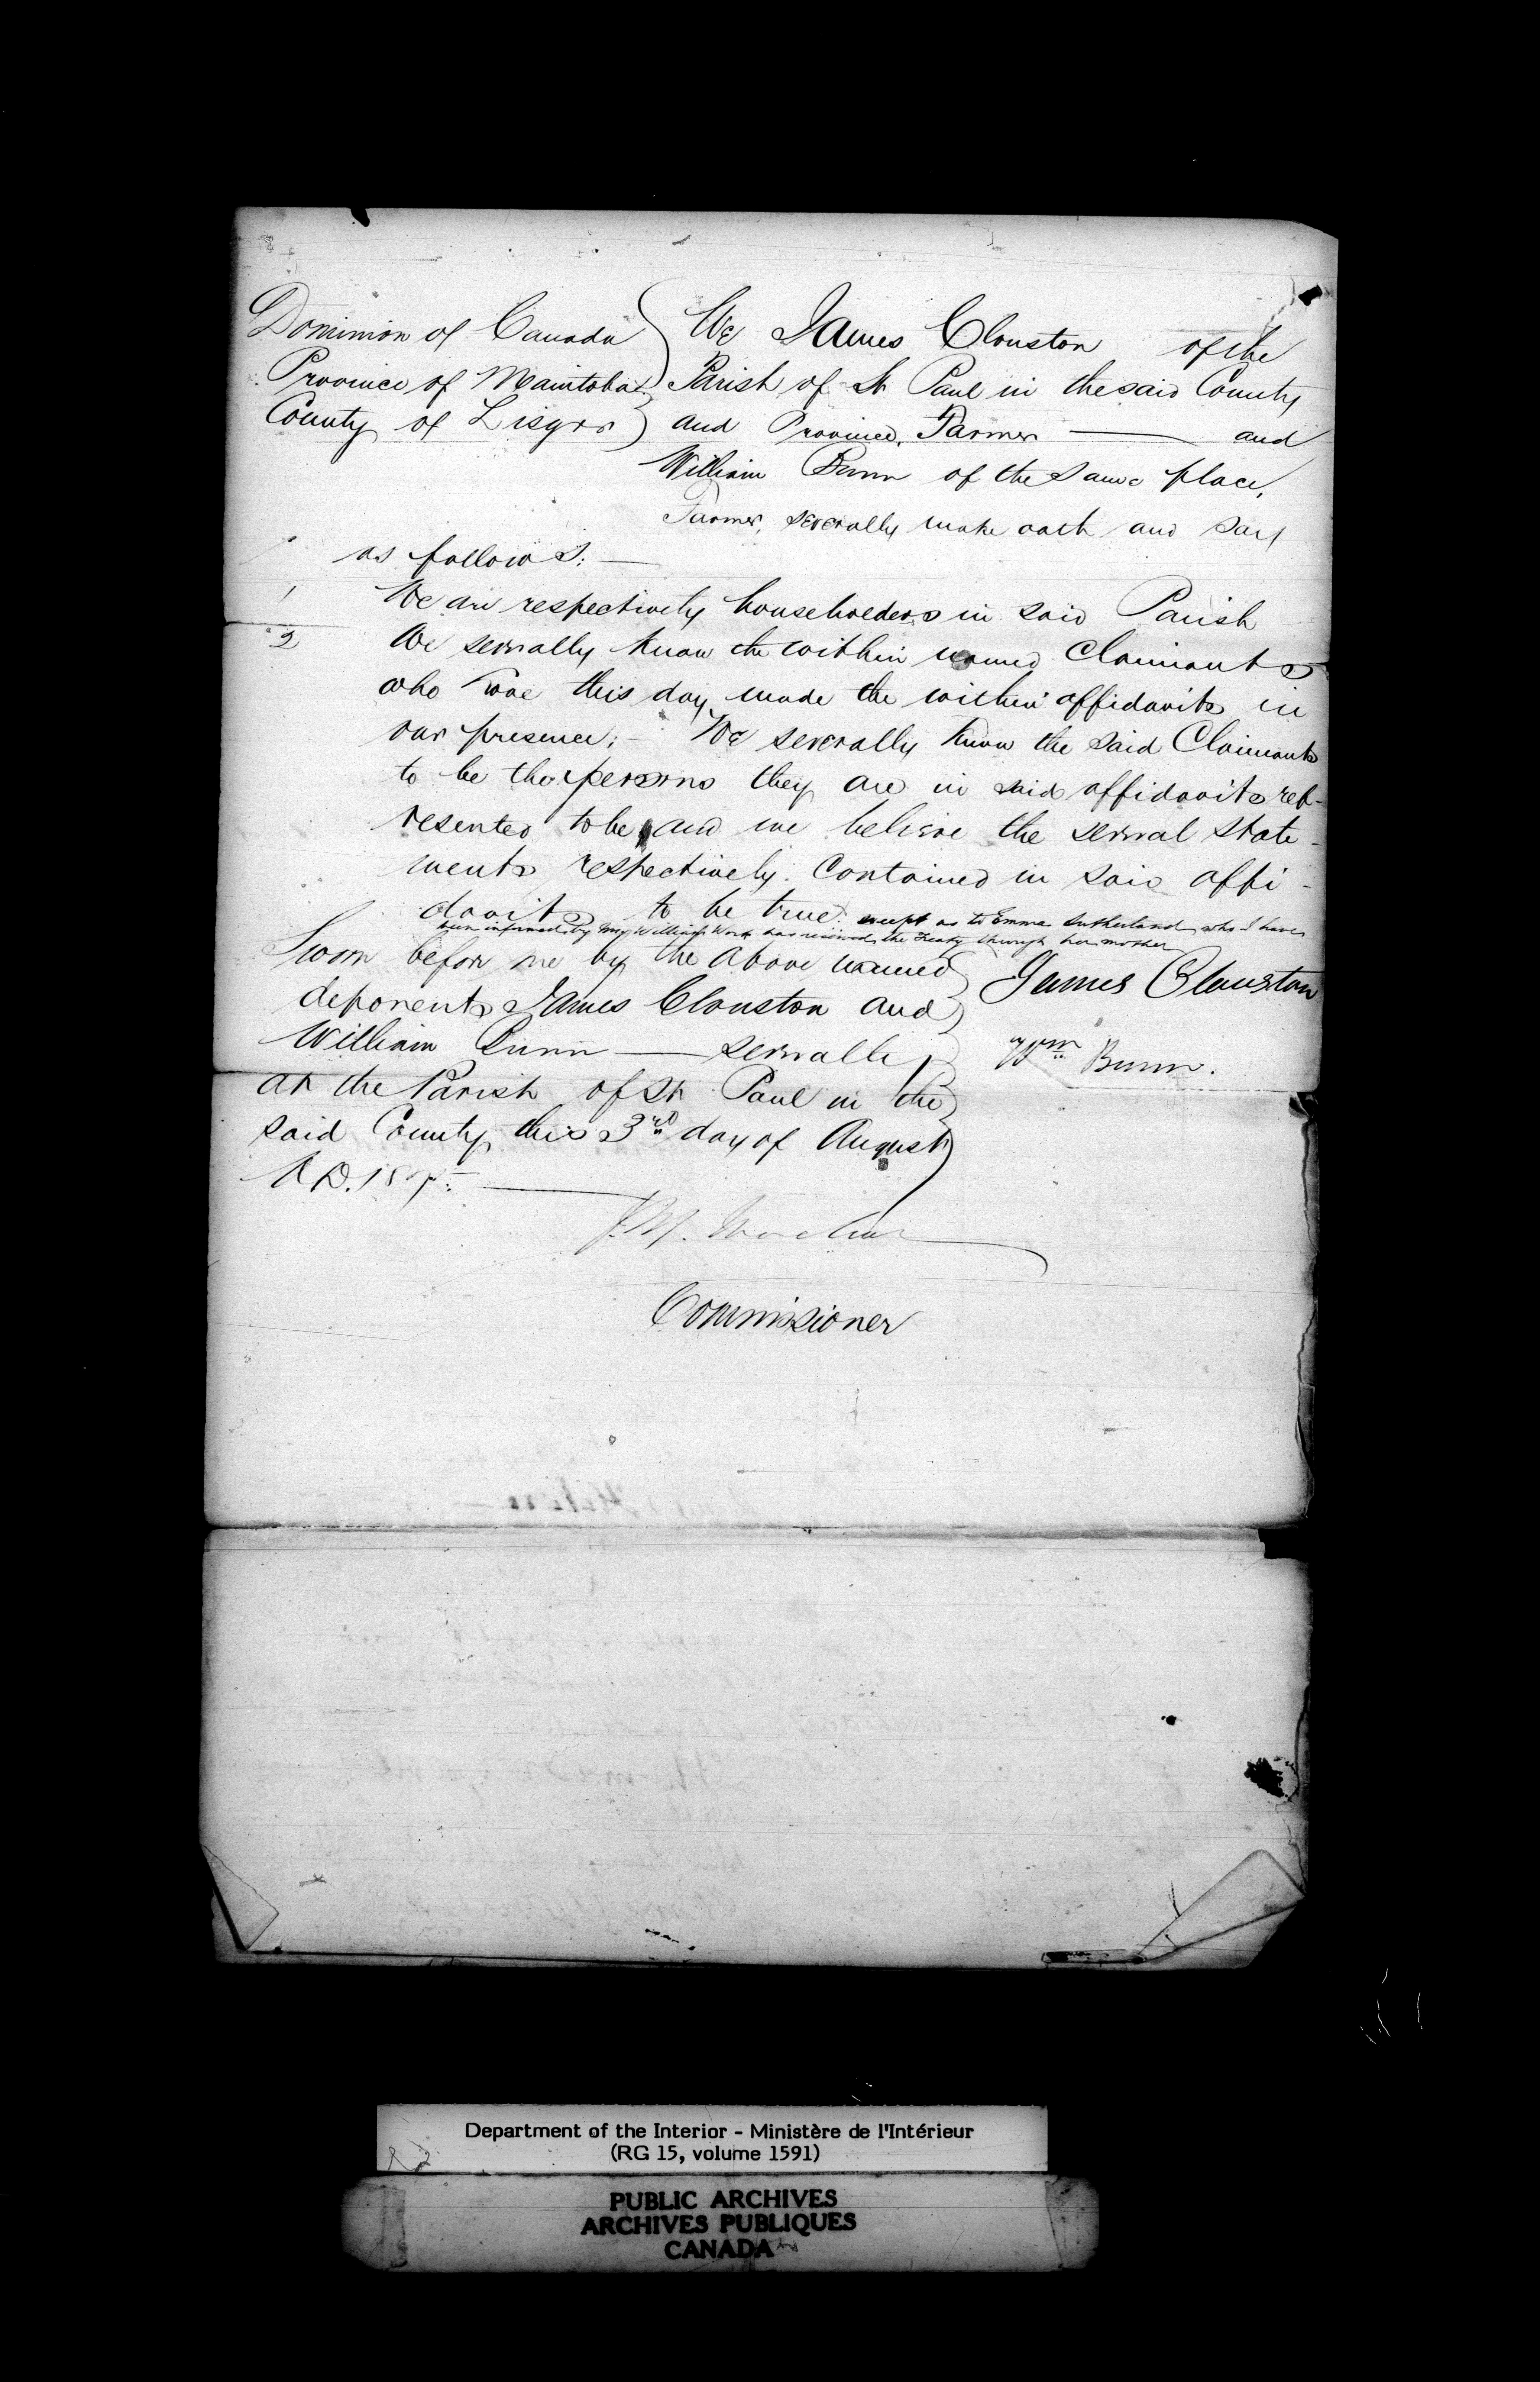 Dominion of Canada
Province of Manitoba
County of Lisgar
We James Clouston of the
Parish of St Paul in the said County
and Province, Farmer — and
William Bunn of the same place,
Farmer, severally make oath and say
as follows: —
1 We are respectively householders in said Parish
2 We severally know the within named Claimants
who have this day made the within affidavits in
our presence; — We severally know the said Claimants
to be the persons they are in said affidavits rep-
resented to be and we believe the several state-
ments respectively contained in said affi-
davits to be true. except as to Emma Sutherland who I have
been informed by William Work has received the Treaty through her mother
Sworn before me by the above named
deponents James Clouston and
William Bunn — severally
at the Parish of St Paul in the
said County this 3rd day of August
A.D. 187
James Clouston
Wm Bunn.
Commissioner
Department of the Interior - Ministère de l'Intérieur
(RG 15, volume 1591)
PUBLIC ARCHIVES
ARCHIVES PUBLIQUES
CANADA